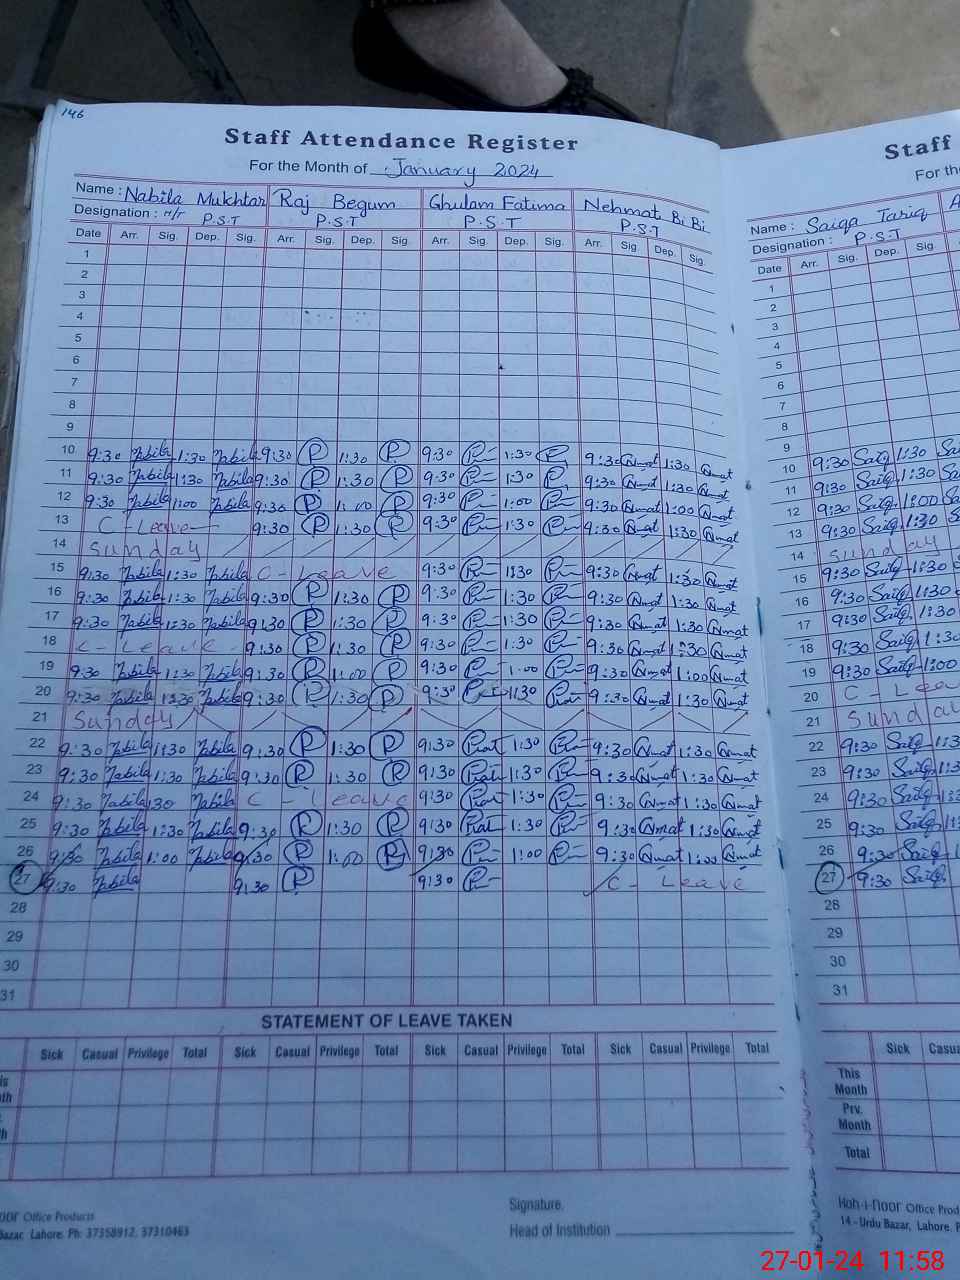 146
Staff Attendance Register
For the Month of January 2024
Name : Nabila Mukhtar Raj Begum Ghulam Fatima Nehmat Bi Bi
Designation : H/T P.S.T P.S.T P.S.T P.S.T
Date Arr. Sig. Dep. Sig. Arr. Sig. Dep. Sig. Arr. Sig. Dep. Sig. Arr. Sig. Dep. Sig.
1
2
3
4
5
6
7
8
9
10 9:30 Nabila 1:30 Nabila 9:30 R 1:30 R 9:30 1:30 9:30 Qmat 1:30 Qmat
11 9:30 Nabila 1:30 Nabila 9:30 R 1:30 R 9:30 1:30 9:30 Qmat 1:30 Qmat
12 9:30 Nabila 1:00 Nabila 9:30 R 1:00 R 9:30 1:00 9:30 Qmat 1:00 Qmat
13 C - Leave 9:30 R 1:30 R 9:30 1:30 9:30 Qmat 1:30 Qmat
14 Sunday
15 9:30 Nabila 1:30 Nabila C - Leave 9:30 1:30 9:30 Qmat 1:30 Qmat
16 9:30 Nabila 1:30 Nabila 9:30 R 1:30 R 9:30 1:30 9:30 Qmat 1:30 Qmat
17 9:30 Nabila 1:30 Nabila 9:30 R 1:30 R 9:30 1:30 9:30 Qmat 1:30 Qmat
18 C - Leave - 9:30 R 1:30 R 9:30 1:30 9:30 Qmat 1:30 Qmat
19 9:30 Nabila 1:30 Nabila 9:30 R 1:00 R 9:30 1:00 9:30 Qmat 1:00 Qmat
20 9:30 Nabila 1:30 Nabila 9:30 R 1:30 R 9:30 1:30 9:30 Qmat 1:30 Qmat
21 Sunday
22 9:30 Nabila 1:30 Nabila 9:30 R 1:30 R 9:30 1:30 9:30 Qmat 1:30 Qmat
23 9:30 Nabila 1:30 Nabila 9:30 R 1:30 R 9:30 1:30 9:30 Qmat 1:30 Qmat
24 9:30 Nabila 1:30 Nabila C - Leave 9:30 1:30 9:30 Qmat 1:30 Qmat
25 9:30 Nabila 1:30 Nabila 9:30 R 1:30 R 9:30 1:30 9:30 Qmat 1:30 Qmat
26 9:30 Nabila 1:00 Nabila 9:30 R 1:00 R 9:30 1:00 9:30 Qmat 1:00 Qmat
27 9:30 Nabila 9:30 R 9:30 C - Leave
28
29
30
31
STATEMENT OF LEAVE TAKEN
Sick Casual Privilege Total Sick Casual Privilege Total Sick Casual Privilege Total Sick Casual Privilege Total
Office Products
Bazar, Lahore. Ph: 37358912, 37310463
Signature.
Head of Institution
Staff
For the
Name : Saiqa Tariq
Designation : P.S.T
Date Arr. Sig. Dep. Sig.
1
2
3
4
5
6
7
8
9
10 9:30 Saiq 1:30
11 9:30 Saiq 1:30
12 9:30 Saiq 1:00
13 9:30 Saiq 1:30
14 Sunday
15 9:30 Saiq 1:30
16 9:30 Saiq 1:30
17 9:30 Saiq 1:30
18 9:30 Saiq 1:30
19 9:30 Saiq 1:00
20 C - Lea
21 Sunda
22 9:30 Saiq
23 9:30 Saiq
24 9:30 Saiq
25 9:30 Saiq
26 9:30 Saiq
27 9:30 Saiq
28
29
30
31
Sick Casu
This Month
Prv. Month
Total
Koh-i-noor Office Prod
14 - Urdu Bazar, Lahore. P
27-01-24 11:58